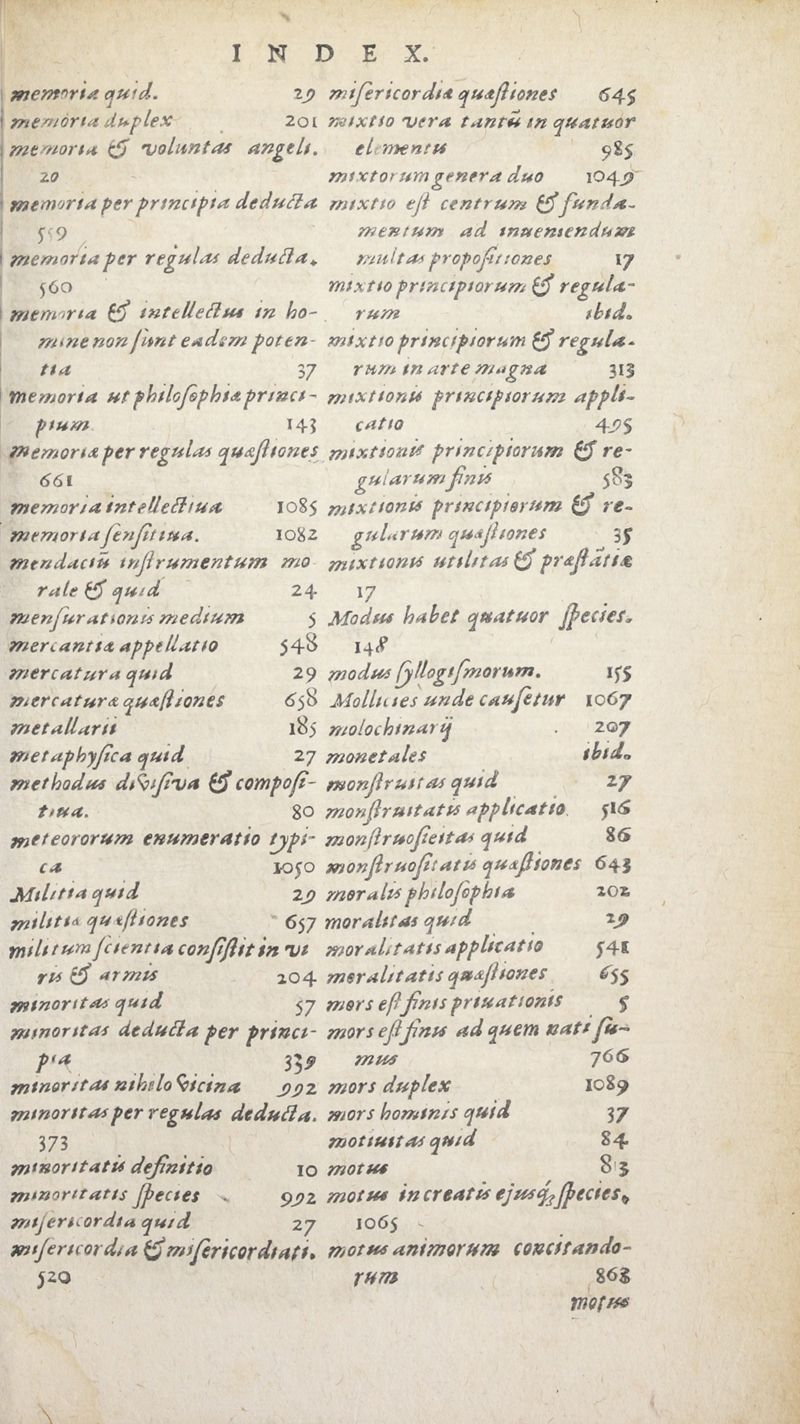 INDEX.
memoria quid. 29
memoria duplex 201
memoria & voluntas angeli.
20
memoria per principia deducta
559
memoria per regulas deducta.
560
memoria & intellectus in ho-
mine non sunt eadem poten-
tia 37
memoria ut philosophiæ princi-
pium 143
memoriæ per regulas quæstiones
661
memoria intellectiua 1085
memoria sensitiua. 1082
mendaciū instrumentum mo
rale & quid 24
mensurationis medium 5
mercantiæ appellatio 548
mercatura quid 29
mercaturæ quæstiones 658
metallarii 185
metaphysica quid 27
methodus divisiva & composi-
tiua. 80
meteororum enumeratio typi-
ca 1050
Militia quid 29
militiæ quæstiones 657
militum scientia consistit in vi
ris & armis 204
minoritas quid 57
minoritas deducta per princi-
pia 339
minoritas nihilo vicina 992
minoritas per regulas deducta.
373
minoritatis definitio 10
minoritatis species 992
misericordia quid 27
misericordia & misericordiati.
520
misericordiæ quæstiones 645
mixtio vera tantū in quatuor
elementis 985
mixtorum genera duo 1049
mixtio est centrum & funda-
mentum ad inueniendum
multas propositiones 17
mixtio principiorum & regula-
rum ibid.
mixtio principiorum & regula-
rum in arte magna 313
mixtionis principiorum appli-
catio 495
mixtionis principiorum & re-
gularum finis 583
mixtionis principiorum & re-
gularum quæstiones 35
mixtionis utilitas & præstātia
17
Modus habet quatuor species.
148
modus syllogismorum. 155
Mollicies unde causetur 1067
molochinarij 207
monetales ibid.
monstruitas quid 27
monstruitatis applicatio. 516
monstruosieitas quid 86
monstruositatis quæstiones 643
moralis philosophia 202
moralitas quid 29
moralitatis applicatio 541
moralitatis quæstiones 655
mors est finis priuationis 5
mors est finis ad quem nati su-
mus 766
mors duplex 1089
mors hominis quid 37
motiuitas quid 84
motus 83
motus in creatis ejusq́; species.
1065
motus animorum concitando-
rum 868
motus